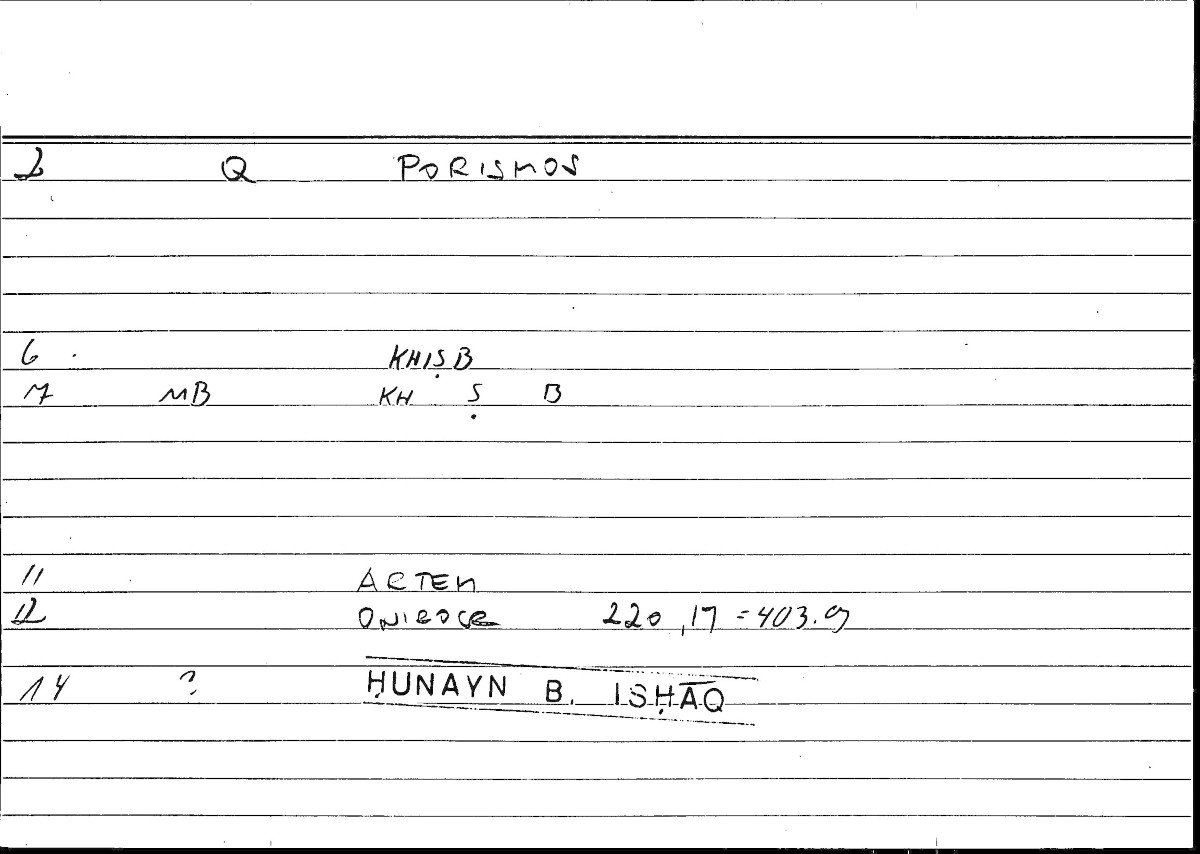 2 Q PORISMOS
6 KHIṢB
7 MB KH Ṣ B
11 ARTEM
12 ONIROCR 220,17 = 403.9
14 ? ḤUNAYN B. ISḤĀQ